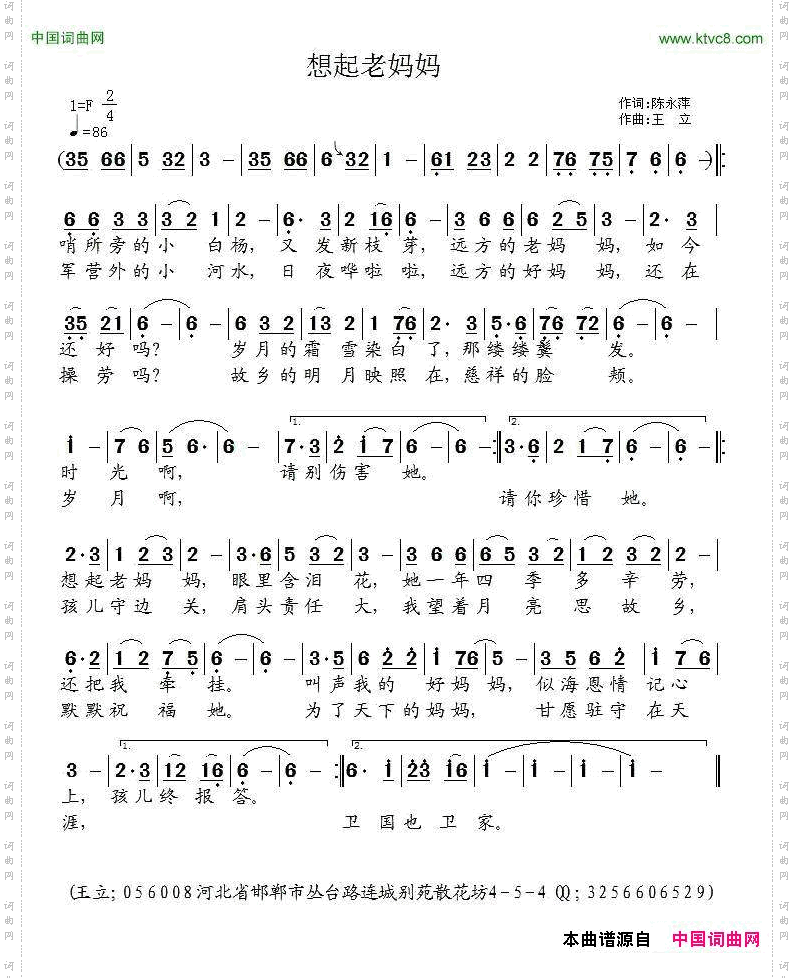 中国词曲网
www.ktvc8.com
想起老妈妈
1=F 2/4
♩=86
作词:陈永萍
作曲:王 立
(35 66 | 5 32 | 3 - | 35 66 | 6 32 | 1 - | 61 23 | 2 2 | 76 75 | 7 6 | 6 - ):
6 6 3 3 | 3 2 1 | 2 - | 6· 3 | 2 16 | 6 - | 3 6 6 | 6 2 5 | 3 - | 2· 3
哨所旁的小 白杨, 又发新枝芽, 远方的老妈 妈, 如今
军营外的小 河水, 日夜哗啦啦, 远方的好妈 妈, 还在
35 21 | 6 - | 6 - | 6 3 2 | 13 2 | 1 76 | 2· 3 | 5·6 | 76 72 | 6 - | 6 -
还好吗? 岁月的霜 雪染白了,那缕缕鬓 发。
操劳吗? 故乡的明 月映照在,慈祥的脸 颊。
1 - | 7 6 | 5 6· | 6 - | 1. 7·3 | 2 1 7 | 6 - | 6 - :‖ 2. 3·6 | 2 1 7 | 6 - | 6 - :
时光啊, 请别伤害 她。
岁月啊, 请你珍惜 她。
2·3 | 1 2 3 | 2 - | 3·6 | 5 3 2 | 3 - | 3 6 6 | 6 5 3 | 2 1 2 | 3 2 | 3 -
想起老妈 妈, 眼里含泪 花, 她一年四 季 多 辛 劳,
孩儿守边 关, 肩头责任 大, 我望着月 亮 思 故 乡,
6·2 | 1 2 7 5 | 6 - | 6 - | 3·5 | 6 2 2 | 1 76 | 5 - | 3 5 6 2 | 1 7 6
还把我 牵 挂。 叫声我的 好妈 妈, 似海恩情 记心
默默祝 福 她。 为了天下的妈妈, 甘愿驻守 在天
3 - | 1. 2·3 | 12 16 | 6 - | 6 - :‖ 2. 6· 1 | 23 16 | 1 - | 1 - | 1 - | 1 - ‖
上, 孩儿终 报 答。
涯, 卫 国也 卫 家。
(王立; 056008河北省邯郸市丛台路连城别苑散花坊4-5-4 QQ; 3256606529)
本曲谱源自 中国词曲网